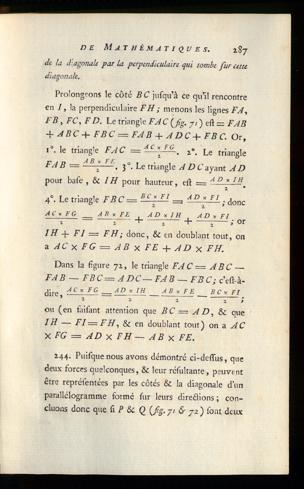 DE MATHÉMATIQUES. 287
de la diagonale par la perpendiculaire qui tombe sur cette
diagonale.
Prolongeons le côté BC jusqu'à ce qu'il rencontre
en I, la perpendiculaire FH; menons les lignes FA,
FB, FC, FD. Le triangle FAC (fig. 71) est = FAB
+ ABC + FBC = FAB + ADC + FBC. Or,
1°. le triangle FAC = AC × FG / 2. 2°. Le triangle
FAB = AB × FE / 2. 3°. Le triangle ADC ayant AD
pour base, & IH pour hauteur, est = AD × IH / 2.
4°. Le triangle FBC = BC × FI / 2 = AD × FI / 2; donc
AC × FG / 2 = AB × FE / 2 + AD × IH / 2 + AD × FI / 2; or
IH + FI = FH; donc, & en doublant tout, on
a AC × FG = AB × FE + AD × FH.
Dans la figure 72, le triangle FAC = ABC —
FAB — FBC = ADC — FAB — FBC; c'est-à-
dire, AC × FG / 2 = AD × IH / 2 — AB × FE / 2 — BC × FI / 2;
ou (en faisant attention que BC = AD, & que
IH — FI = FH, & en doublant tout) on a AC
× FG = AD × FH — AB × FE.
244. Puisque nous avons démontré ci-dessus, que
deux forces quelconques, & leur résultante, peuvent
être représentées par les côtés & la diagonale d'un
parallélogramme formé sur leurs directions; con-
cluons donc que si P & Q (fig. 71 & 72) sont deux